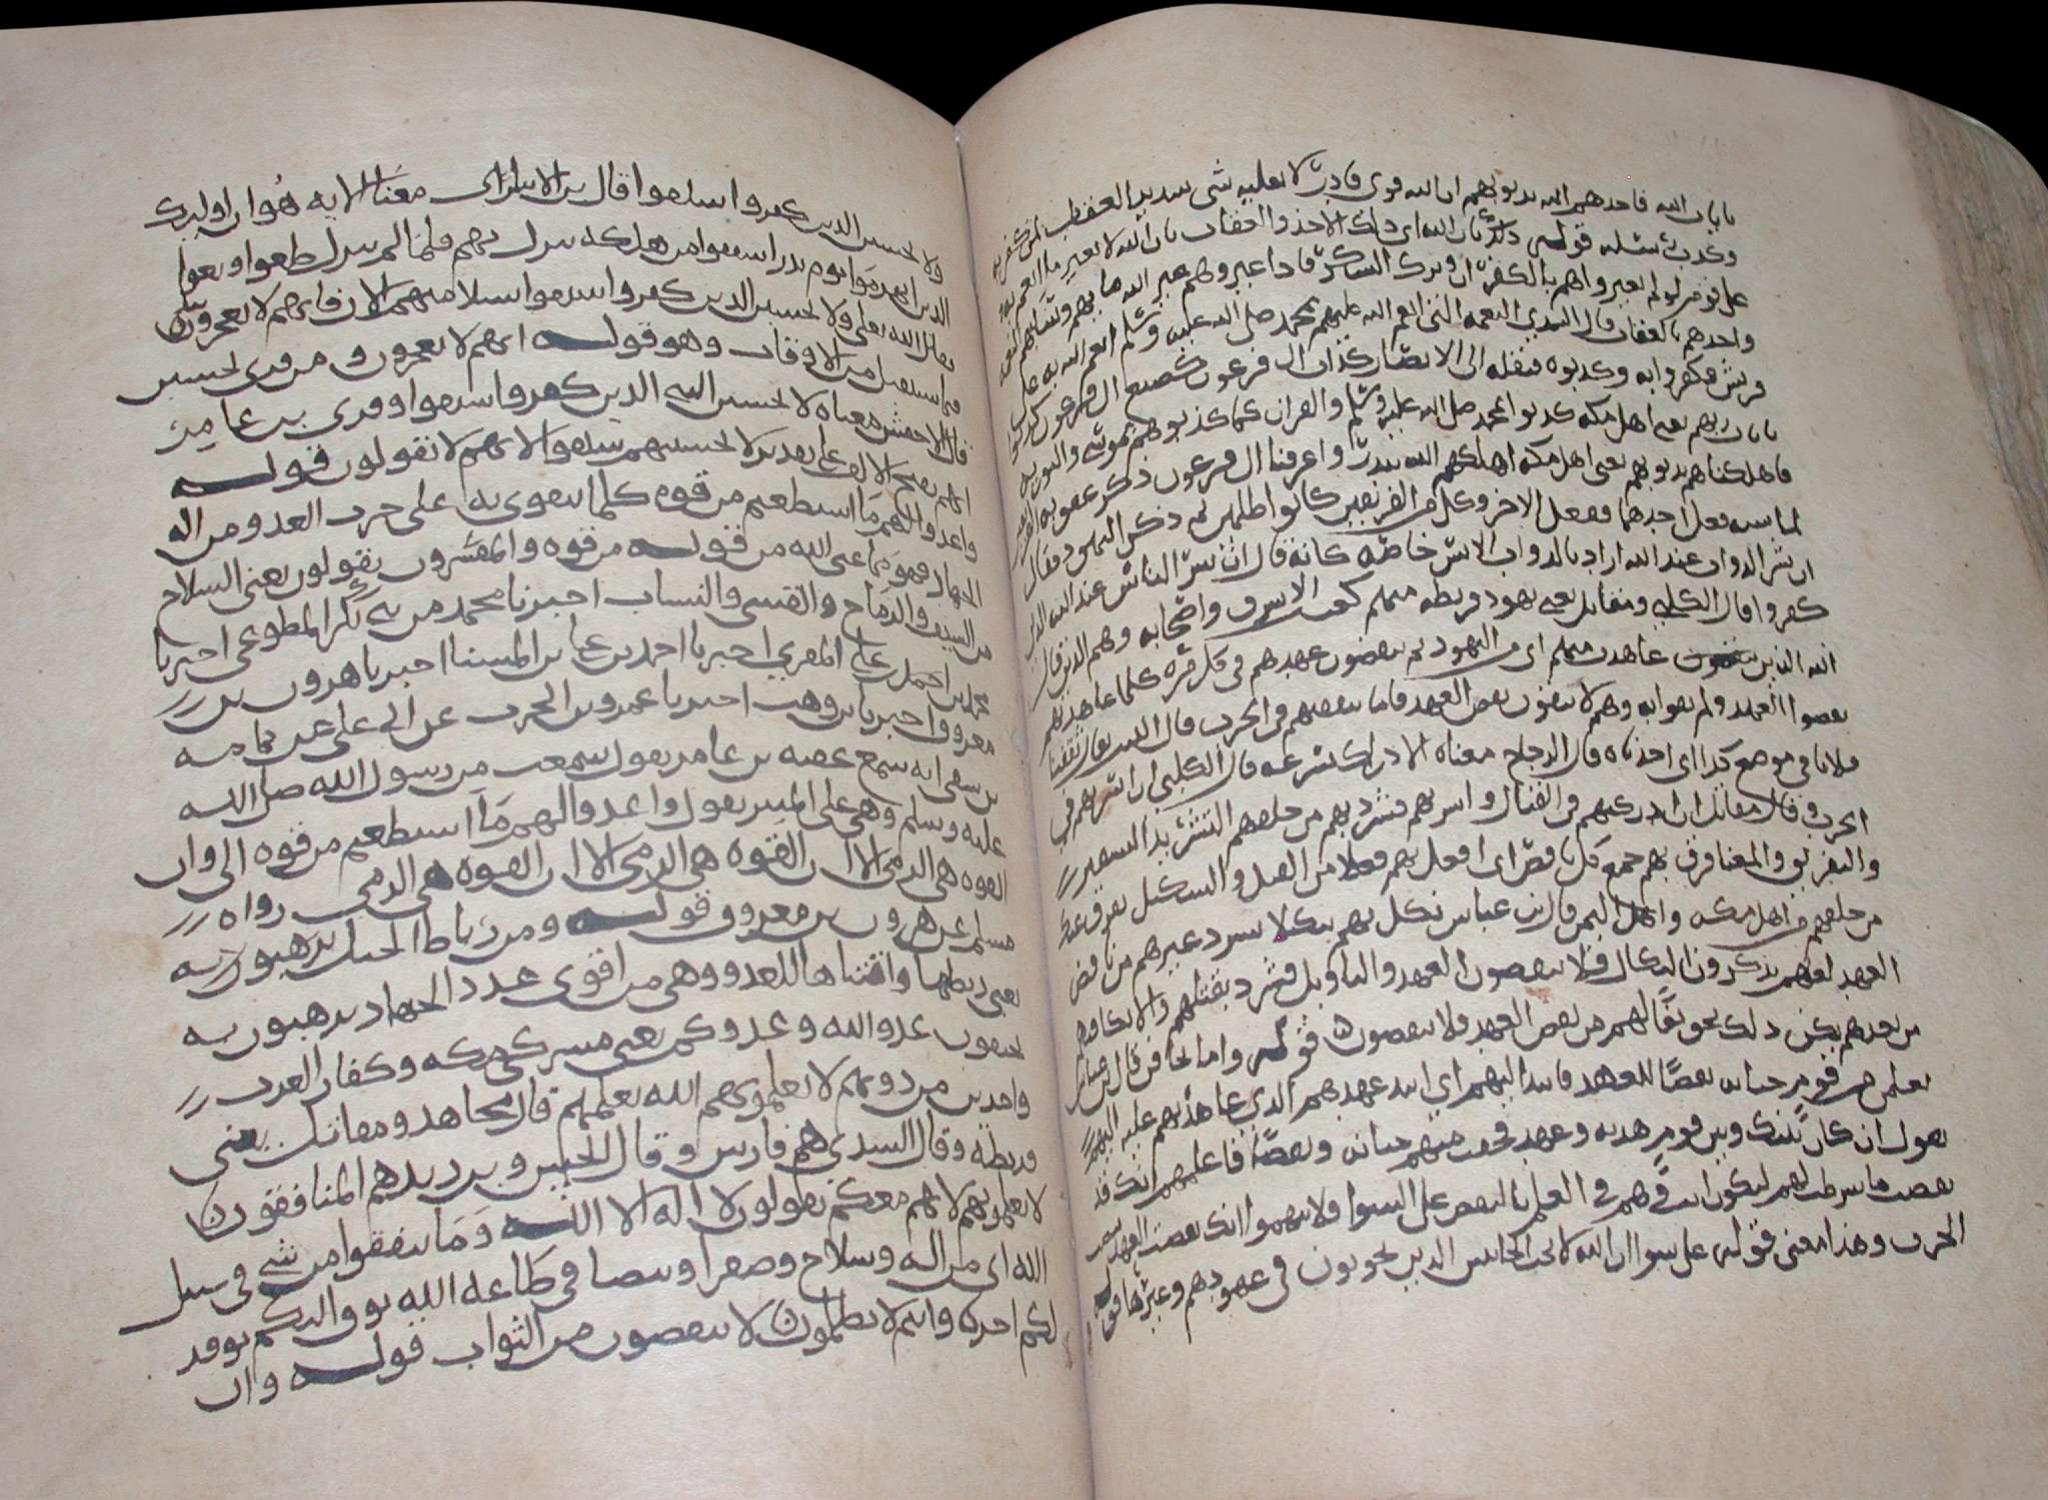 بايات الله فاخذهم الله بذنوبهم ان الله قوي قادر لا يغلبه شي شديد العقاب لمن كفر به
وكذب رسله قوله ذلك بان الله اي ذلك الاخذ والعقاب بان الله لا يغير ما انعم به
على قوم لو لم يغيروا هم بالكفران وترك الشكر فاذا غيروا هم غير الله ما بهم وسلبهم النعمه
واخذهم بالعقاب قال السدي النعمه التي انعم الله عليهم بمحمد صلى الله عليه وسلم انعم الله به على
قريش فكفروا به وكذبوه فنقله الى الانصار كذاب ال فرعون كصنيع ال فرعون كذبوا
بايات ربهم يعني اهل مكه كذبوا بمحمد صلى الله عليه وسلم والقران كما كذب هم بموسى والتوريه
فاهلكناهم بذنوبهم يعني اهل مكه اهلكهم الله ببدر واغرقنا ال فرعون ذكر عقوبه الفريقين
لما نسب فعل احدهما بفعل الاخر وكل من الفريقين كانوا ظالمين ثم ذكر اليهود فقال
ان شر الدواب عند الله اراد بالدواب الانس خاصه كانه قال ان شر الناس عند الله الذين
كفروا قال الكلبي ومقاتل يعني يهود قريظه منهم كعب الاشرف واصحابه وهم الذين قال
الله الذين عاهدت منهم اي من اليهود ثم ينقضون عهدهم في كل مره كلما عاهدتهم
نقضوا العهد ولم يفوا به وهم لا يتقون نقض العهد فاما تثقفنهم في الحرب قال الليث يقال ثقفنا
فلانا في موضع كذا اي اخذناه قال الزجاج معناه الادراك بسرعه قال الكلبي ان اسرتهم في
الحرب وقال مقاتل ان ادركتهم في القتال واسرتهم فشرد بهم من خلفهم التشريد التسير
والتفريق والمعنا فرق بهم جمع كل ناقض اي افعل بهم فعلا من القتل والتنكيل يفرق عنك
من خلفهم من اهل مكه واهل اليمن قال ابن عباس نكل بهم تنكيلا يشرد غيرهم من ناقض
العهد لعلهم يذكرون النكال فلا ينقضون العهد والتاويل فشرد بقتلهم والانكا فيهم
من بعدهم يكن ذلك تخويفا لهم من نقض العهد فلا ينقضون قوله واما تخافن قال ابن عباس
تعلمن من قوم خيانه نقضا للعهد فانبذ اليهم اي انبذ عهدهم الذي عاهدتهم عليه اليهم
يقول ان كان بينك وبين قوم هدنه وعهد فخفت منهم خيانه ونقضا فاعلمهم انك قد
نقضت ما شرطت لهم ليكون انت وهم في العلم بالنقض على السوا فلا يتوهموا انك نقضت العهد بنصب
الحرب وهذا معنى قوله على سوا ان الله لا يحب الخاينين الذين يخونون في عهودهم وغيرها قوله
ولا تحسبن الذين كفروا سبقوا قال ابن الانباري معنا الايه هو ان اوليك
الذين انهزموا يوم بدر اشفقوا من هلكه تنزل بهم فلما لم تنزل طغوا وبغوا
فقال الله تعالى ولا تحسبن الذين كفروا سبقوا سلامتهم الان فانهم لا يعجزون
فيما يستقبل من الاوقات وهو قوله انهم لا يعجزون ومن قرى يحسبن
قال الاخفش معناه لا يحسبن النبي الذين كفروا سبقوا وقرى ابن عامر
انهم بفتح الالف على تقدير لا تحسبنهم سبقوا لانهم لا يفوتون قوله
واعدوا لهم ما استطعتم من قوه كلما يتقوى به على حرب العدو من اله
الجهاد فهو مما عنى الله من قوله من قوه والمفسرون يقولون يعني السلاح
من السيف والرماح والقسي والنشاب اخبرنا محمد بن ابي بكر المطوعي اخبرنا
محمد بن احمد بن علي المقري اخبرنا احمد بن علي بن المثنا اخبرنا هرون بن
معروف اخبرنا ابن وهب اخبرنا عمرو بن الحرث عن ابي علي ثمامه
بن شفي انه سمع عقبه بن عامر يقول سمعت من رسول الله صلى الله
عليه وسلم وهو على المنبر يقول واعدوا لهم ما استطعتم من قوه الا وان
القوه هي الرمي الا ان القوه هي الرمي الا ان القوه هي الرمي رواه
مسلم عن هرون بن معروف وقوله ومن رباط الخيل ترهبون به
يعني ربطها واقتناها للعدو وهي من اقوى عدد الجهاد ترهبون به
تخيفون عدو الله وعدوكم يعني مشركي مكه وكفار العرب
واخرين من دونهم لا تعلمونهم الله يعلمهم قال مجاهد ومقاتل يعني
قريظه وقال السدي هم فارس وقال الحسن وابن زيد هم المنافقون
لا تعلمونهم لانهم معكم يقولون لا اله الا الله وما تنفقوا من شي في سبيل
الله اي من اله وسلاح وصفرا وبيضا في طاعه الله يوف اليكم يوفر
لكم اجره وانتم لا تظلمون لا تنقصون من الثواب قوله وان